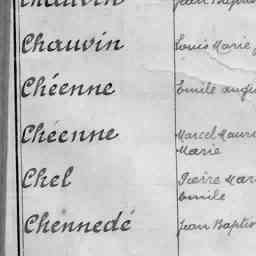 Chauvin Louis Marie
Chéenne Emile
Chéenne Marcel
Marie
Chel Pierre
Emile
Chennedé Jean